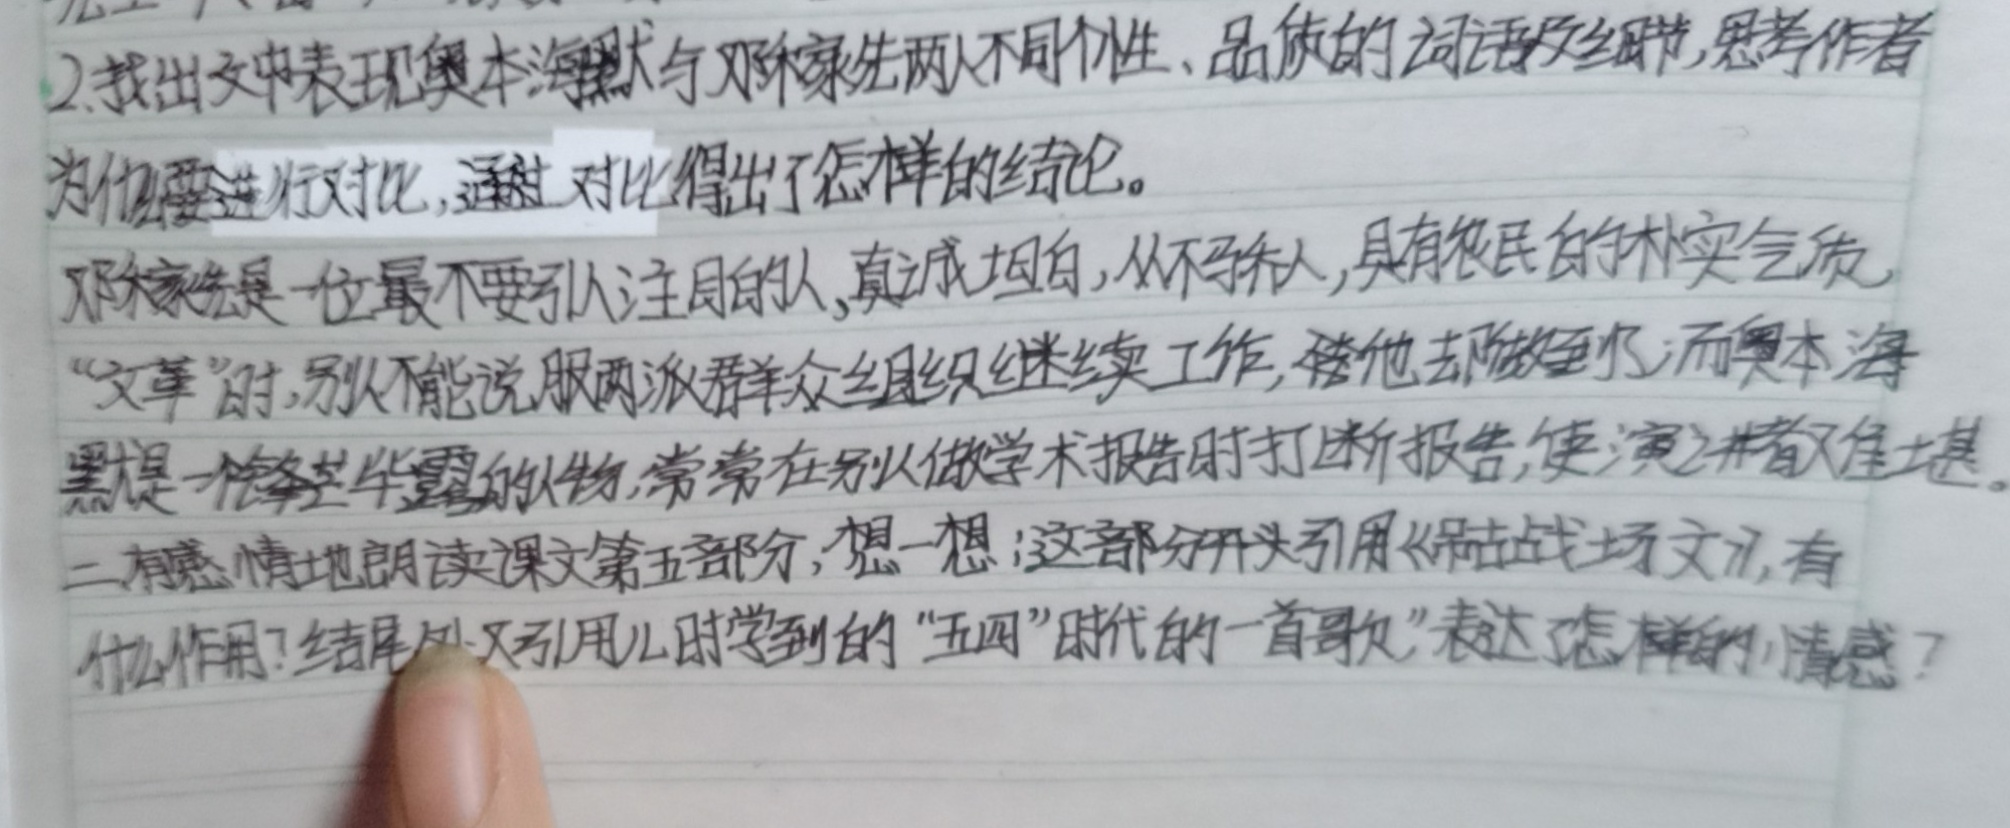 2.找出文中表现奥本海默与邓稼先两人不同个性、品质的词语及细节,思考作者
为什么要进行对比,通过对比得出了怎样的结论。
邓稼先是一位最不要引人注目的人,真诚坦白,从不骄人,具有农民的朴实气质,
“文革”时,别人不能说服两派群众组织继续工作,而他去能做到;而奥本海
默是一个锋芒毕露的人物,常常在别人做学术报告时打断报告,使演讲者难堪。
二、有感情地朗读课文第五部分,想一想:这部分开头引用《吊古战场文》,有
什么作用?结尾处又引用儿时学到的“五四”时代的一首歌”表达了怎样的情感?